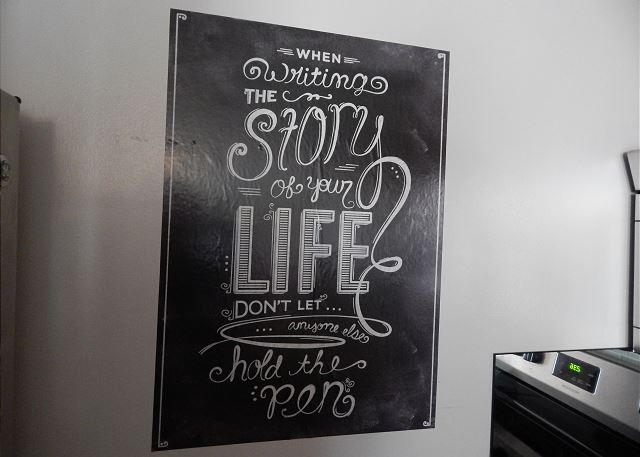 WHEN
Writing
THE
Story
of your
LIFE
DON'T LET...
... anyone else
hold the
pen